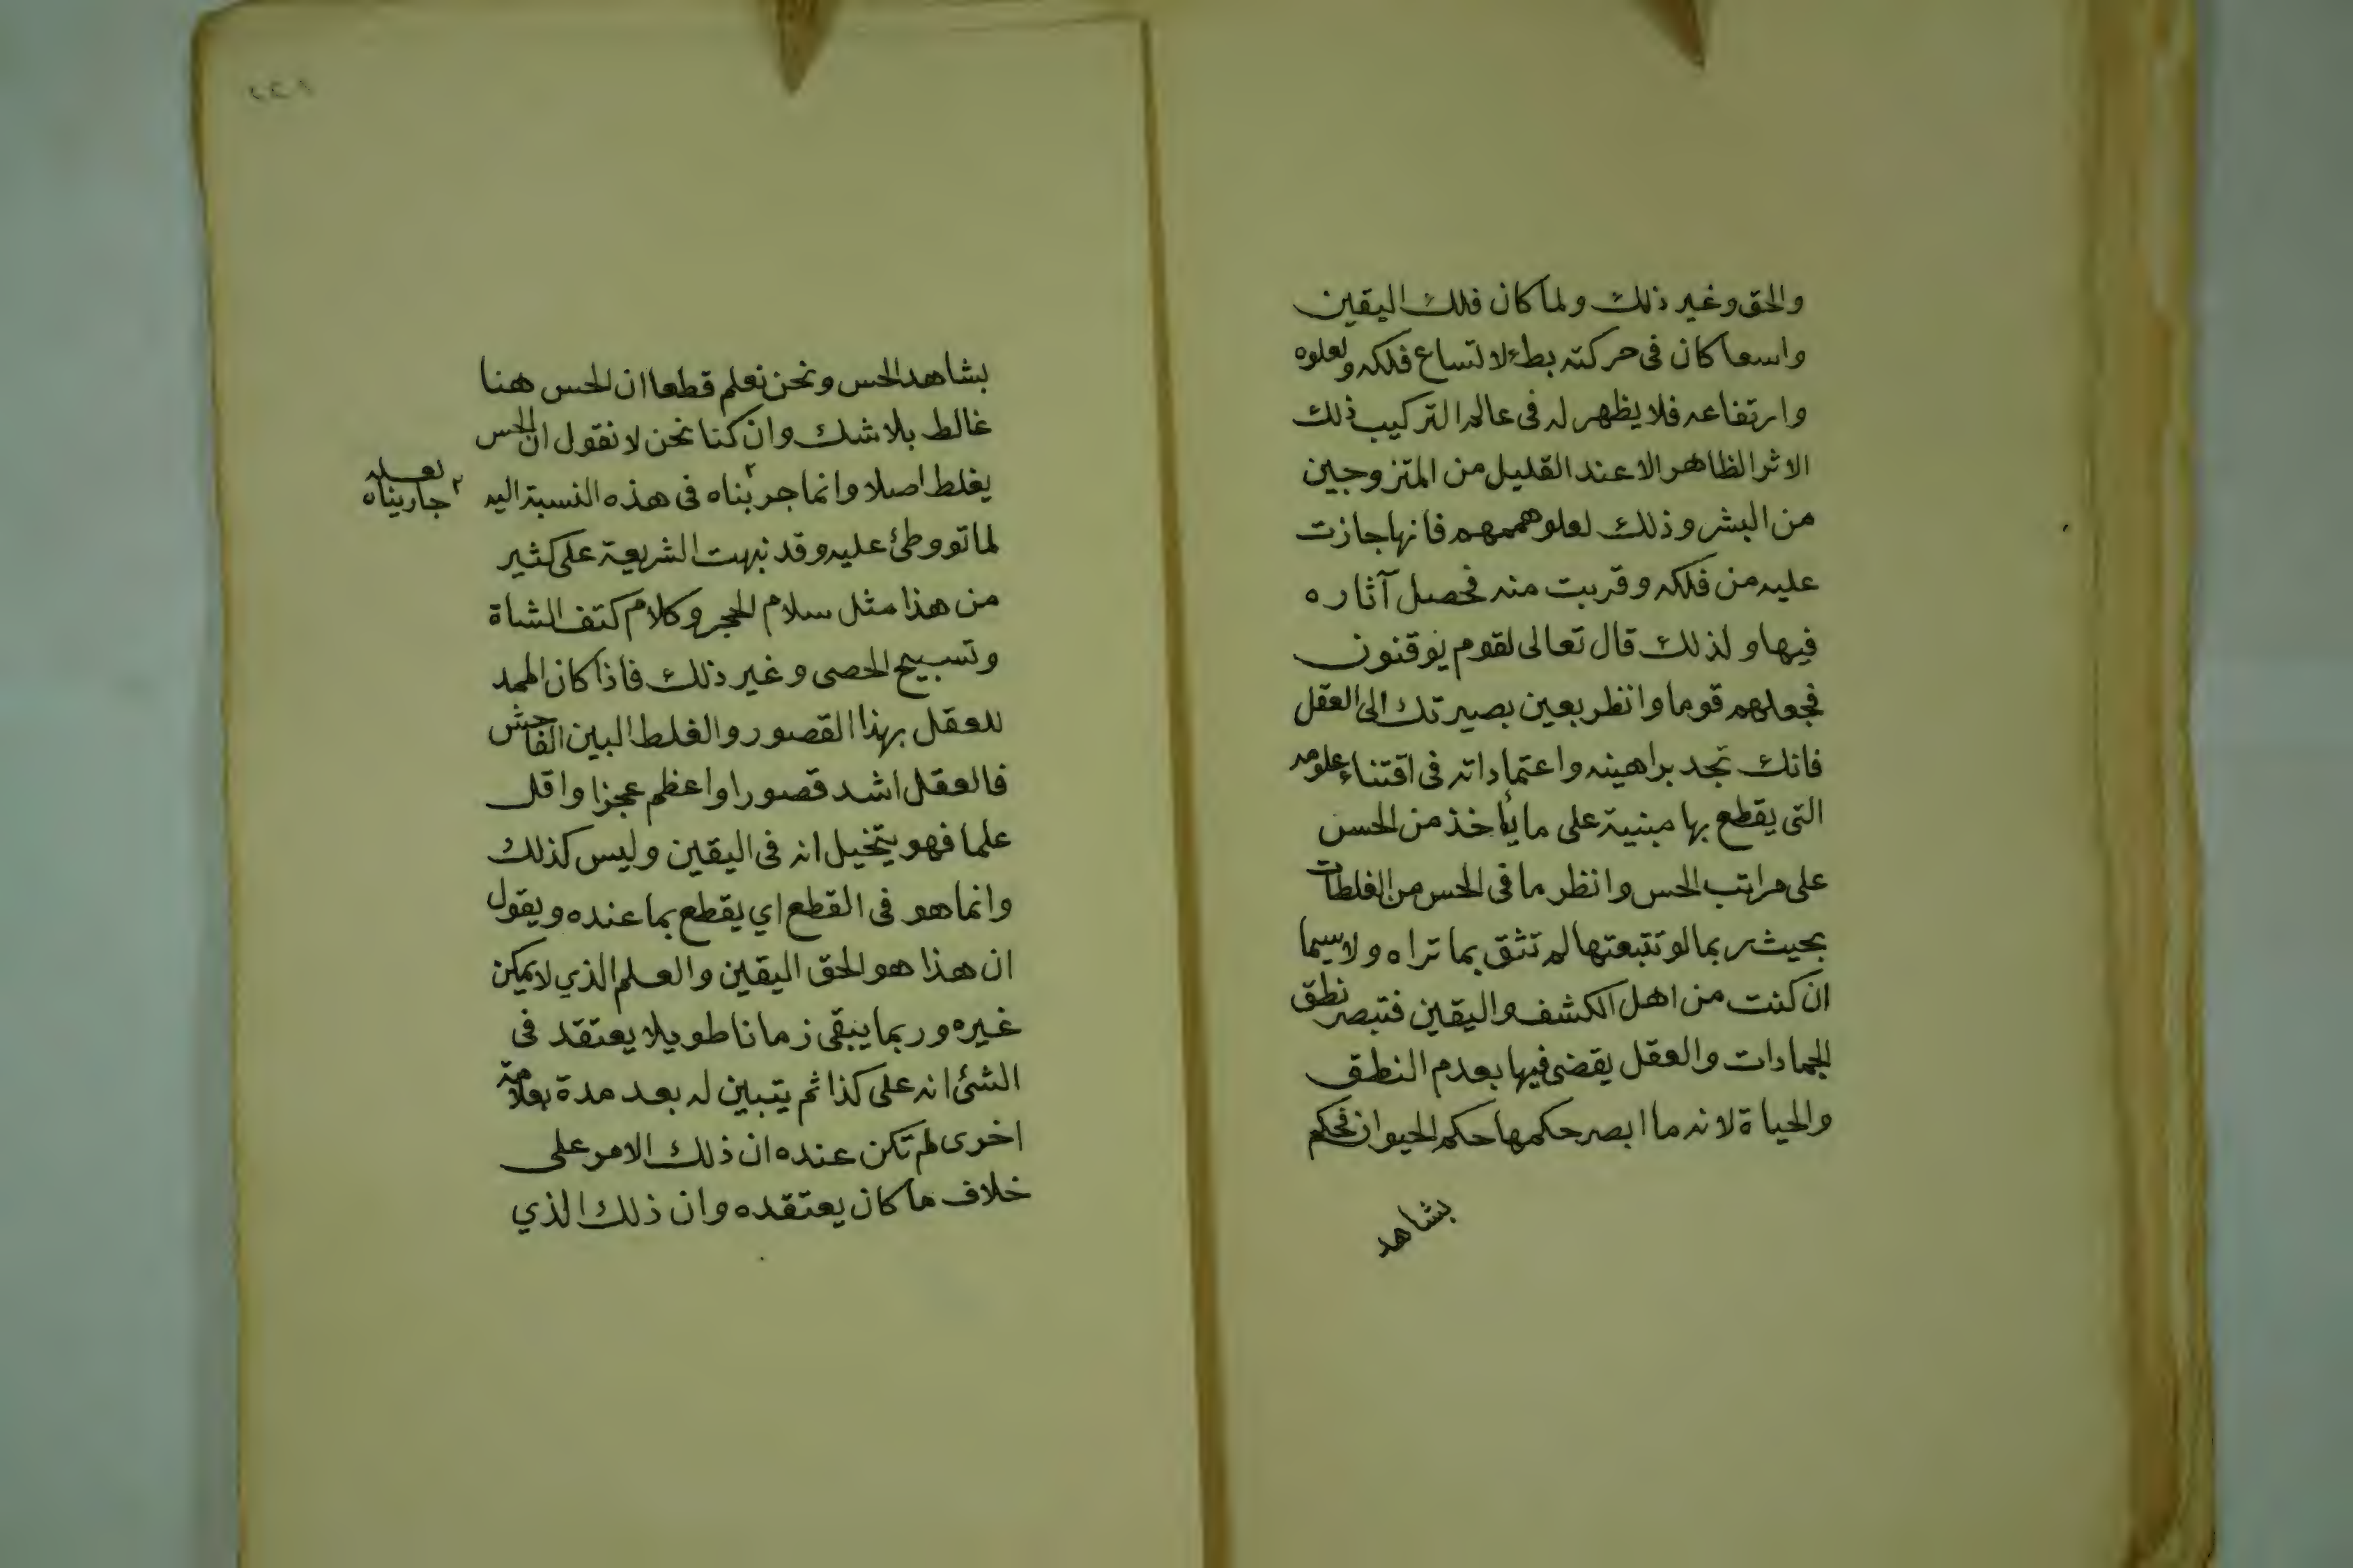 والحق وغير ذلك ولما كان فلك اليقين
واسعا كان في حركته بطئ لاتساع فلكه ولعلوه
وارتفاعه فلا يظهر له في عالم التركيب ذلك
الاثر الظاهر الا عند القليل من المتزوجين
من البشر وذلك لعلو هممهم فانها جازت
عليه من فلكه وقربت منه فحصل آثاره
فيها ولذلك قال تعالى لقوم يوقنون
فجعلهم قوما وانظر بعين بصيرتك الى العقل
فانك تجد براهينه واعتماداته في اقتناء علومه
التي يقطع بها مبنية على ما يأخذ من الحس
على مراتب الحس وانظر ما في الحس من الغلطات
بحيث ربما لو تتبعتها لم تثق بما تراه ولاسيما
ان كنت من اهل الكشف واليقين فتبصر نطق
الجمادات والعقل يقضى فيها بعدم النطق
والحياة لانه ما ابصر حكمها حكم الحيوان فحكم
بشاهد
٢٢٨
بشاهد الحس ونحن نعلم قطعا ان الحس هنا
غالط بلا شك وان كنا نحن لا نقول ان الحس
يغلط اصلا وانما جربناه في هذه النسبة اليه
٢ لعله جاريناه
لما تووطئ عليه وقد نبهت الشريعة على كثير
من هذا مثل سلام الحجر وكلام كتف الشاة
وتسبيح الحصى وغير ذلك فاذا كان الممد
للعقل بهذا القصور والغلط البين الفاحش
فالعقل اشد قصورا واعظم عجزا واقل
علما فهو يتخيل انه في اليقين وليس كذلك
وانما هو في القطع اي يقطع بما عنده ويقول
ان هذا هو الحق اليقين والعلم الذي لا يمكن
غيره وربما يبقى زمانا طويلا يعتقد في
الشئ انه على كذا ثم يتبين له بعد مدة بعلامة
اخرى لم تكن عنده ان ذلك الامر على
خلاف ما كان يعتقده وان ذلك الذي